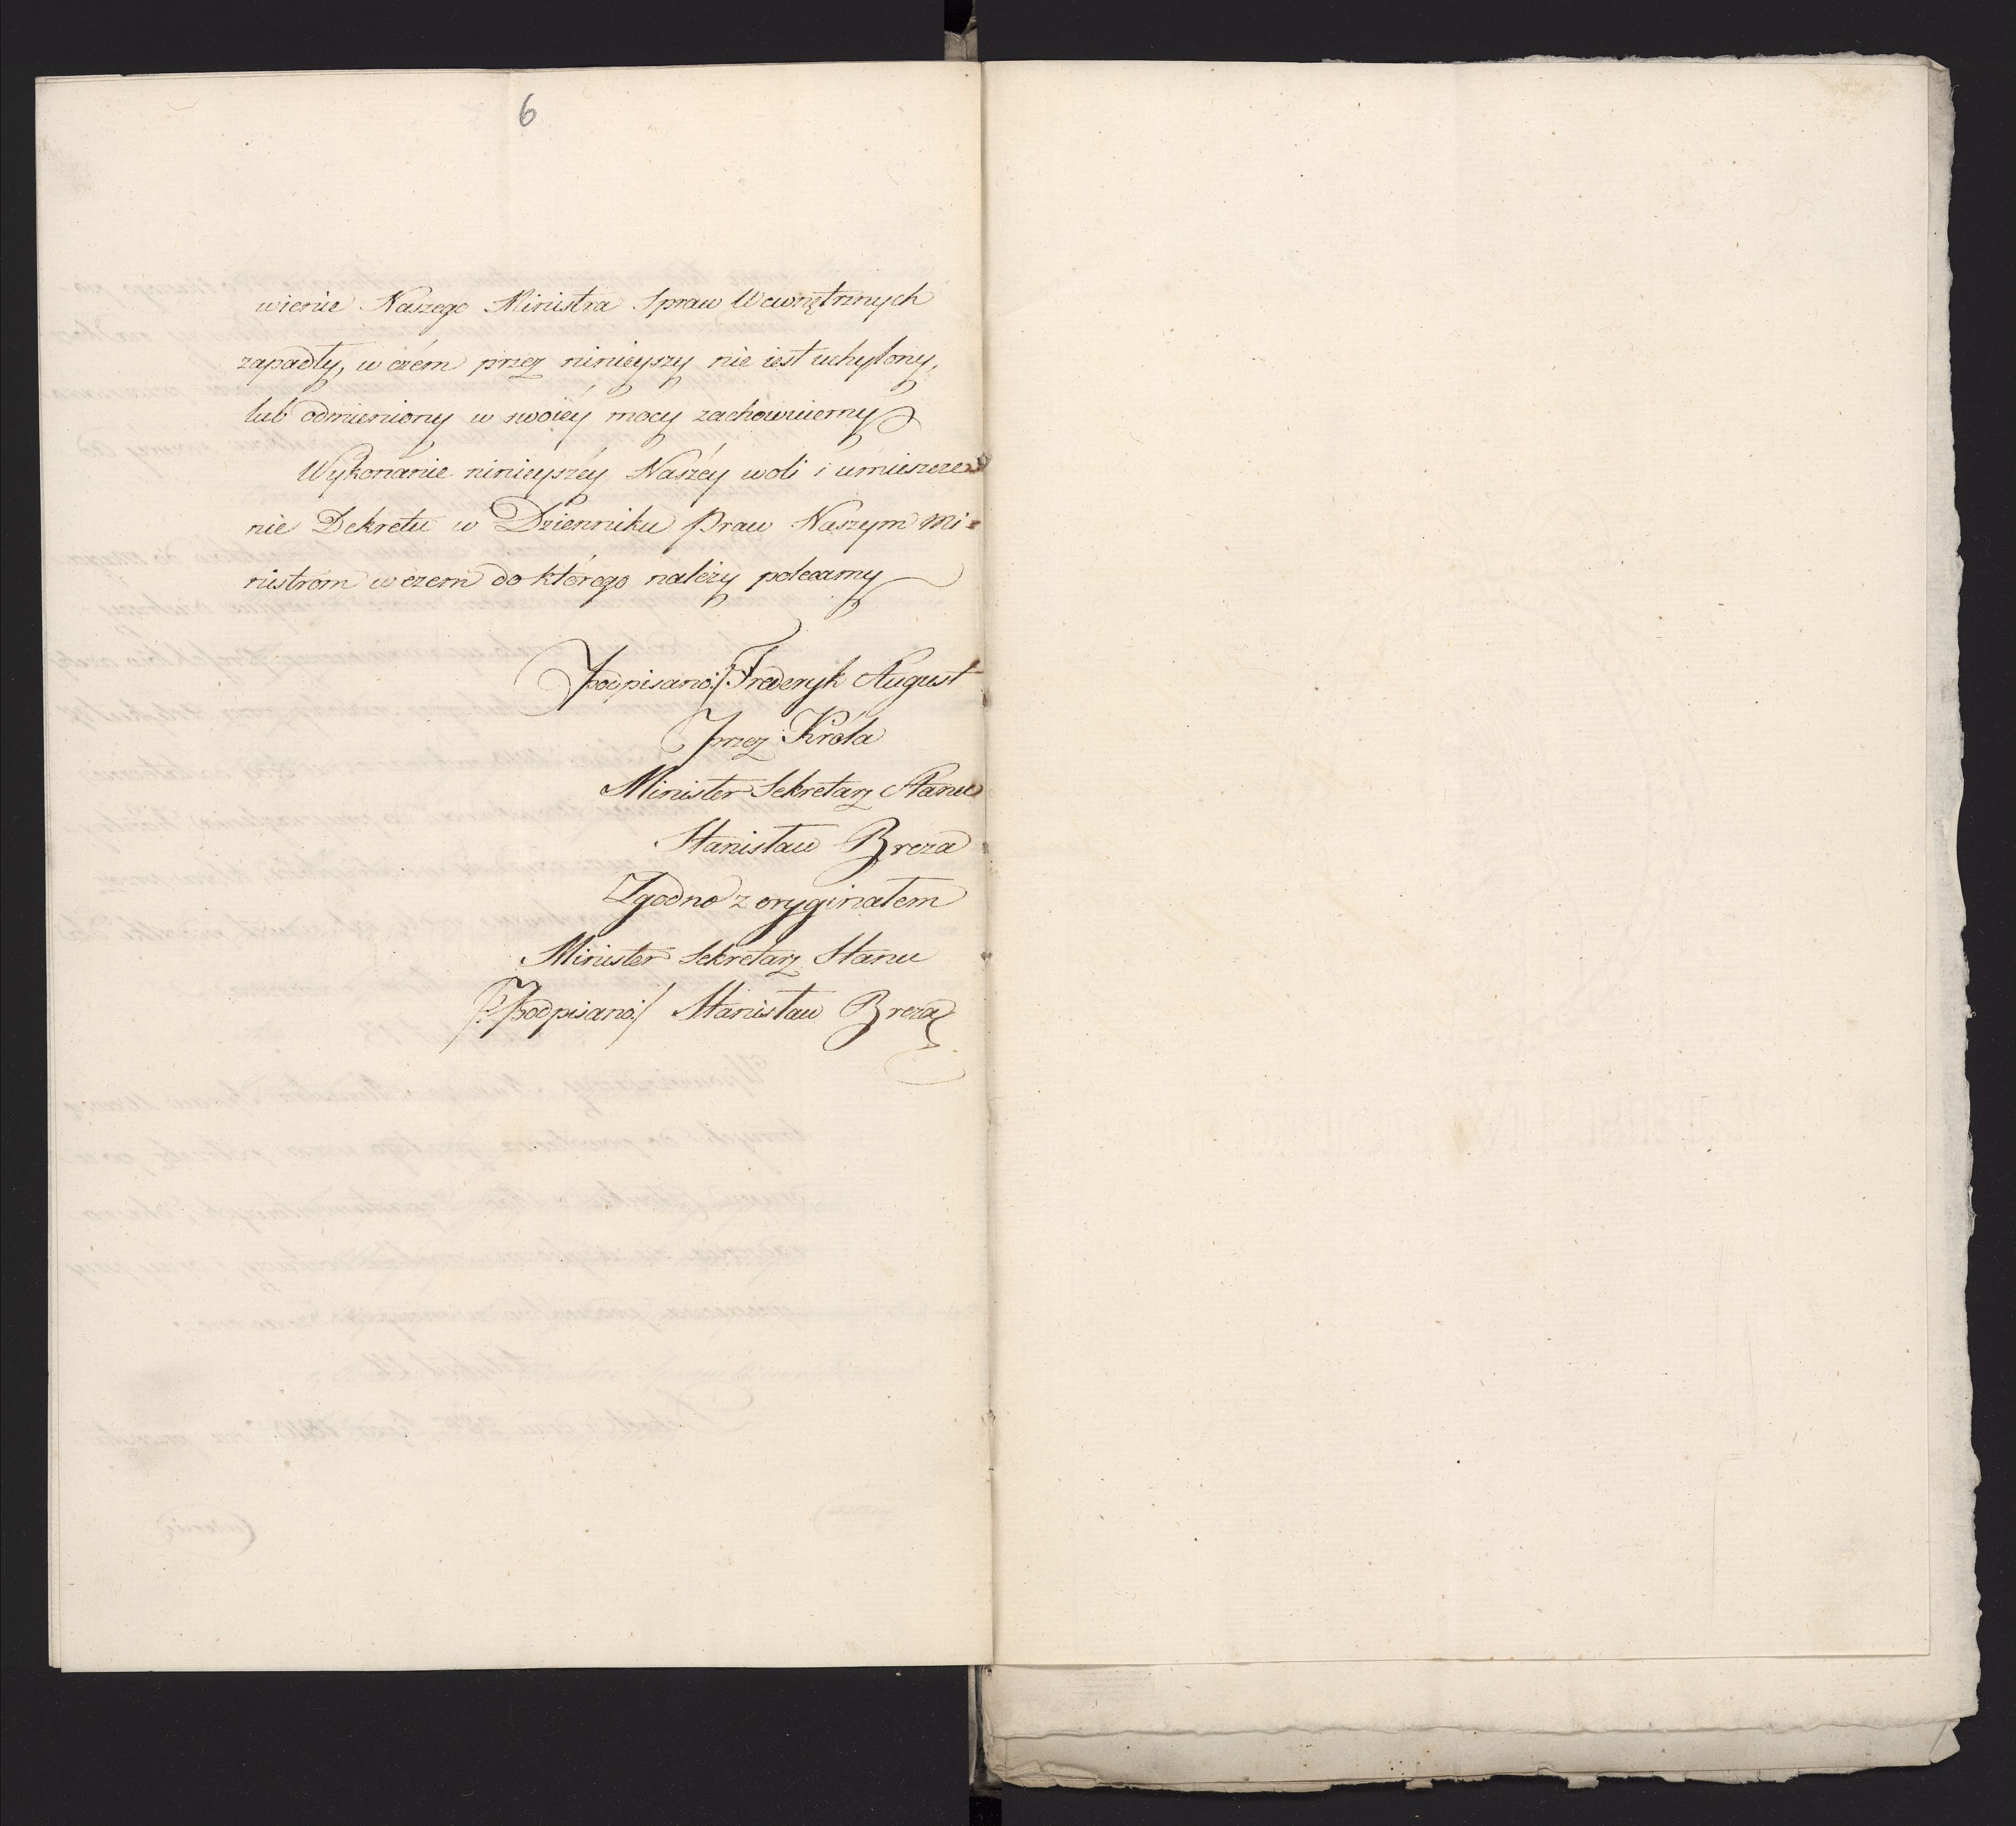 6
wienie Naszego Ministra Spraw Wewnętrznych
zapadły, w czém przez ninieyszy nie iest uchylony,
lub odmieniony w swoiéy mocy zachowuiemy
Wykonanie ninieyszéy Naszéy woli i umieszcze
nie Dekretu w Dzienniku Praw Naszym Mi=
nistróm w czem do którego należy polecamy
podpisano:/ Frederyk August
przez Króla
Minister Sekretarz Stanu
Stanisław Breza
Zgodno z oryginałem
Minister Sekretarz Stanu
/:podpisano:/ Stanisław Breza